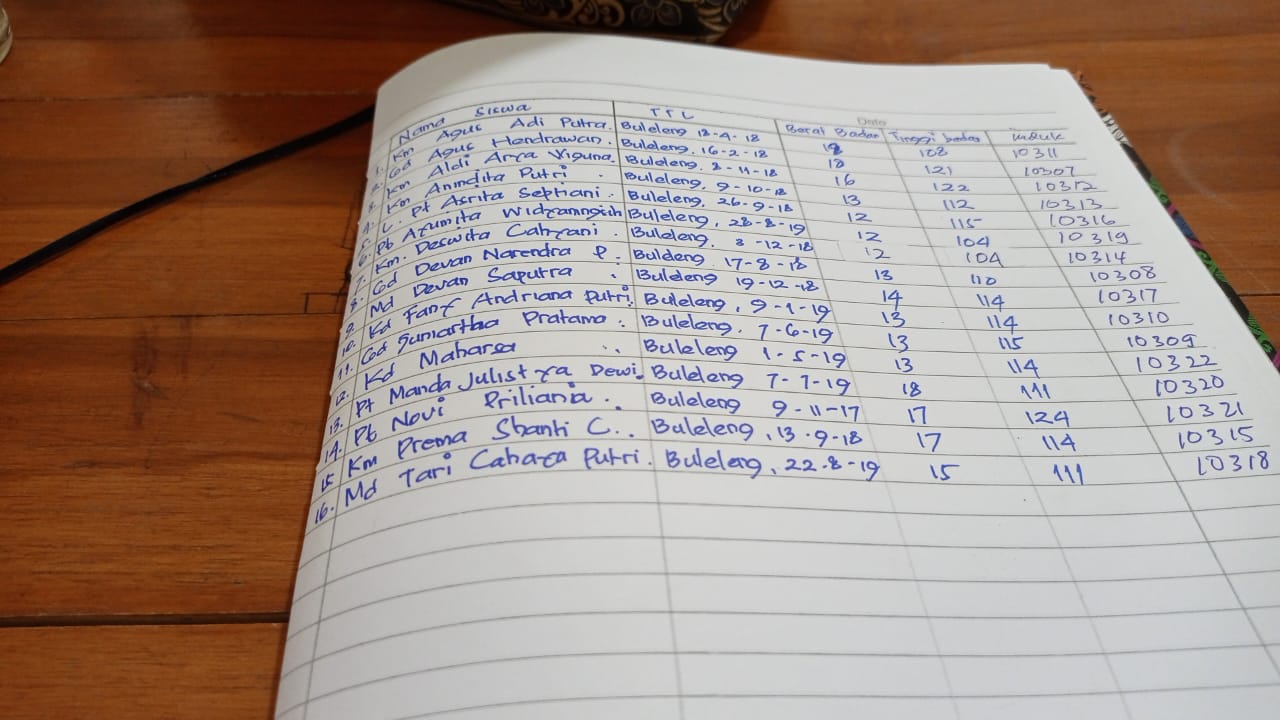 Date
Nama Siswa TTL Berat Badan Tinggi badan Induk
1. Km Agus Adi Putra. Buleleng 18-4-18 18 108 10311
2. Gd Agus Hendrawan. Buleleng. 16-2-18 18 121 10307
3. Km Aldi Arya Viguna. Buleleng. 2-11-18 16 122 10312
4. Km Anindita Putri. Buleleng, 9-10-18 13 112 10313
5. L. Pt Asrita Septiani. Buleleng, 26-9-18 12 115 10316
6. Pt Arumita Widyanngsih Buleleng, 28-8-19 12 104 10319
7. Km. Deswita Cahyani. Buleleng. 3-12-18 12 104 10314
8. Gd Devan Narendra P. Buleleng. 17-8-18 13 110 10308
9. Md Devan Saputra. Buleleng 19-12-18 14 114 10317
10. Kd Fany Andriana Putri. Buleleng, 9-1-19 13 114 10310
11. Gd Gumartha Pratama. Buleleng. 7-6-19 13 115 10309
12. Kd Maharsa.. Buleleng 1-5-19 13 114 10322
13. Pt Manda Julistya Dewi. Buleleng 7-7-19 18 111 10320
14. Pt Novi Priliania. Buleleng 9-11-17 17 124 10321
15 Km Prema Shanti C.. Buleleng, 13.9-18 17 114 10315
16. Md Tari Cahaya Putri. Buleleng, 22.8-19 15 111 10318